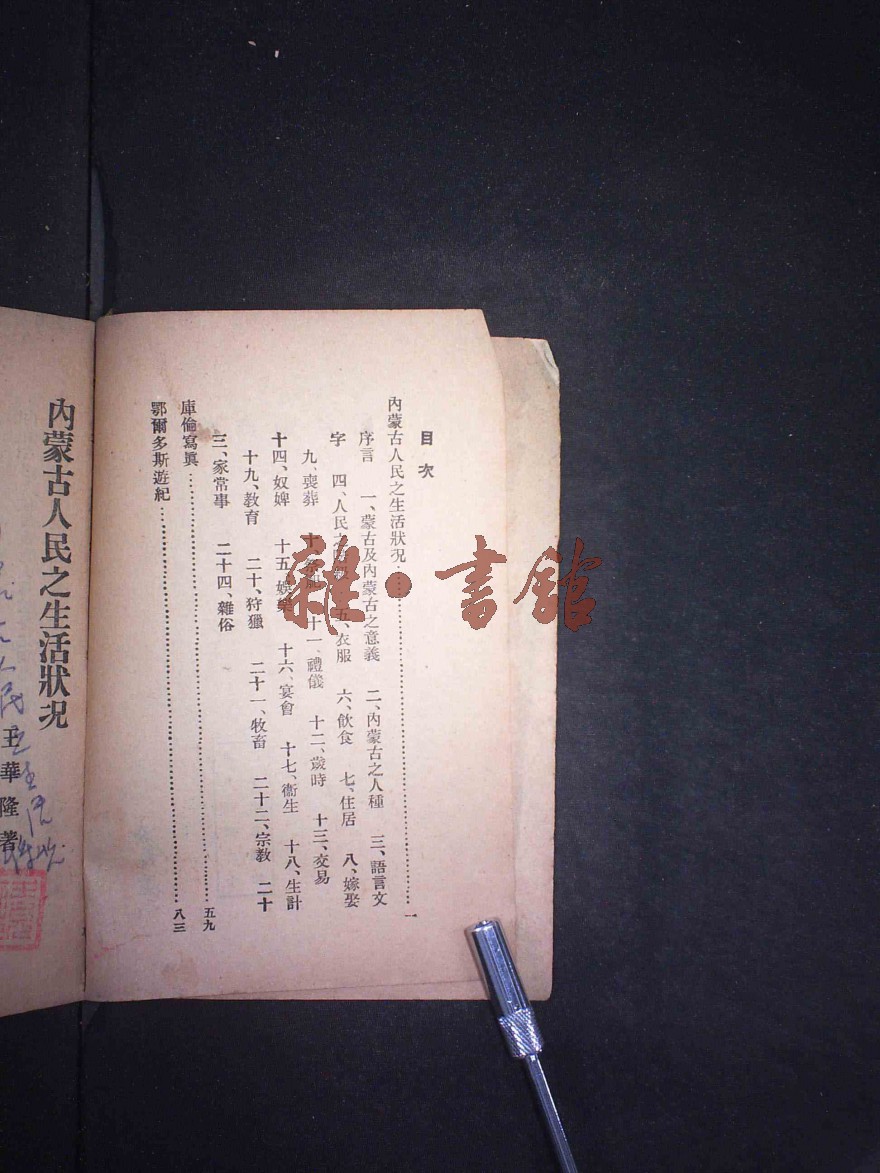 目次
內蒙古人民之生活狀況……一
序言 一、蒙古及內蒙古之意義 二、內蒙古之人種 三、語言文
字 四、人民之 五、衣服 六、飲食 七、住居 八、嫁娶
九、喪葬 十、祭祀 十一、禮儀 十二、歲時 十三、交易
十四、奴婢 十五、娛樂 十六、宴會 十七、衞生 十八、生計
十九、教育 二十、狩獵 二十一、牧畜 二十二、宗教 二十
三、家常事 二十四、雜俗
庫倫寫眞……五九
鄂爾多斯遊紀……八三
內蒙古人民之生活狀況
王華隆著
雜·書館